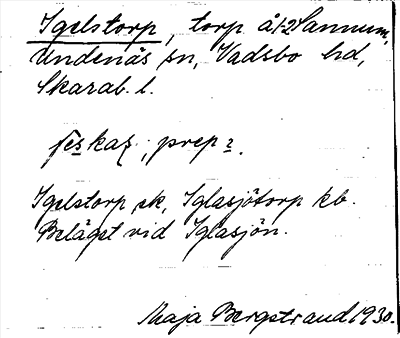 Igelstorp, torp å 1-2 Sannum,
Undenäs sn, Vadsbo hd,
Skarab. l.
prep 2.
Igelstorp sk, Iglasjötorp kb.
Beläget vid Iglasjön.
Maja Bergstrand 1930.